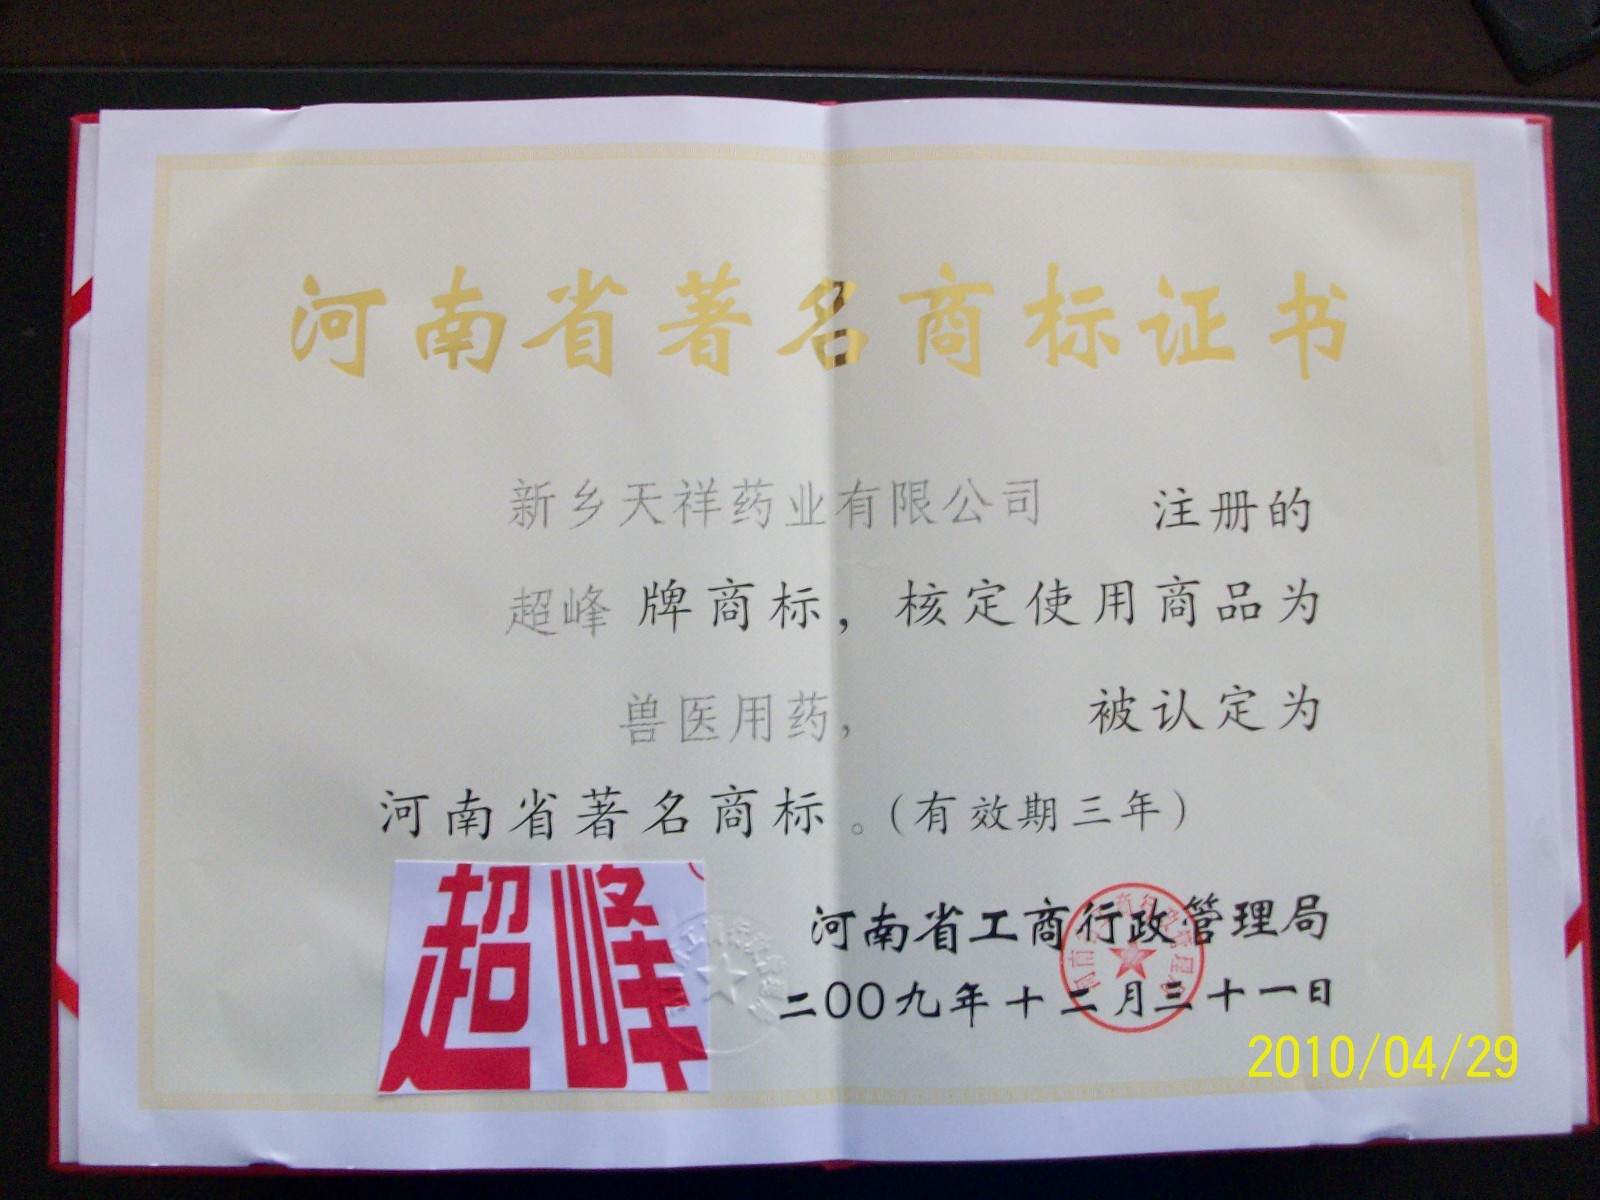 河南省著名商标证书
新乡天祥药业有限公司 注册的
超峰 牌商标，核定使用商品为
兽医用药， 被认定为
河南省著名商标。（有效期三年）
超峰
河南省工商行政管理局
二〇〇九年十二月三十一日
2010/04/29